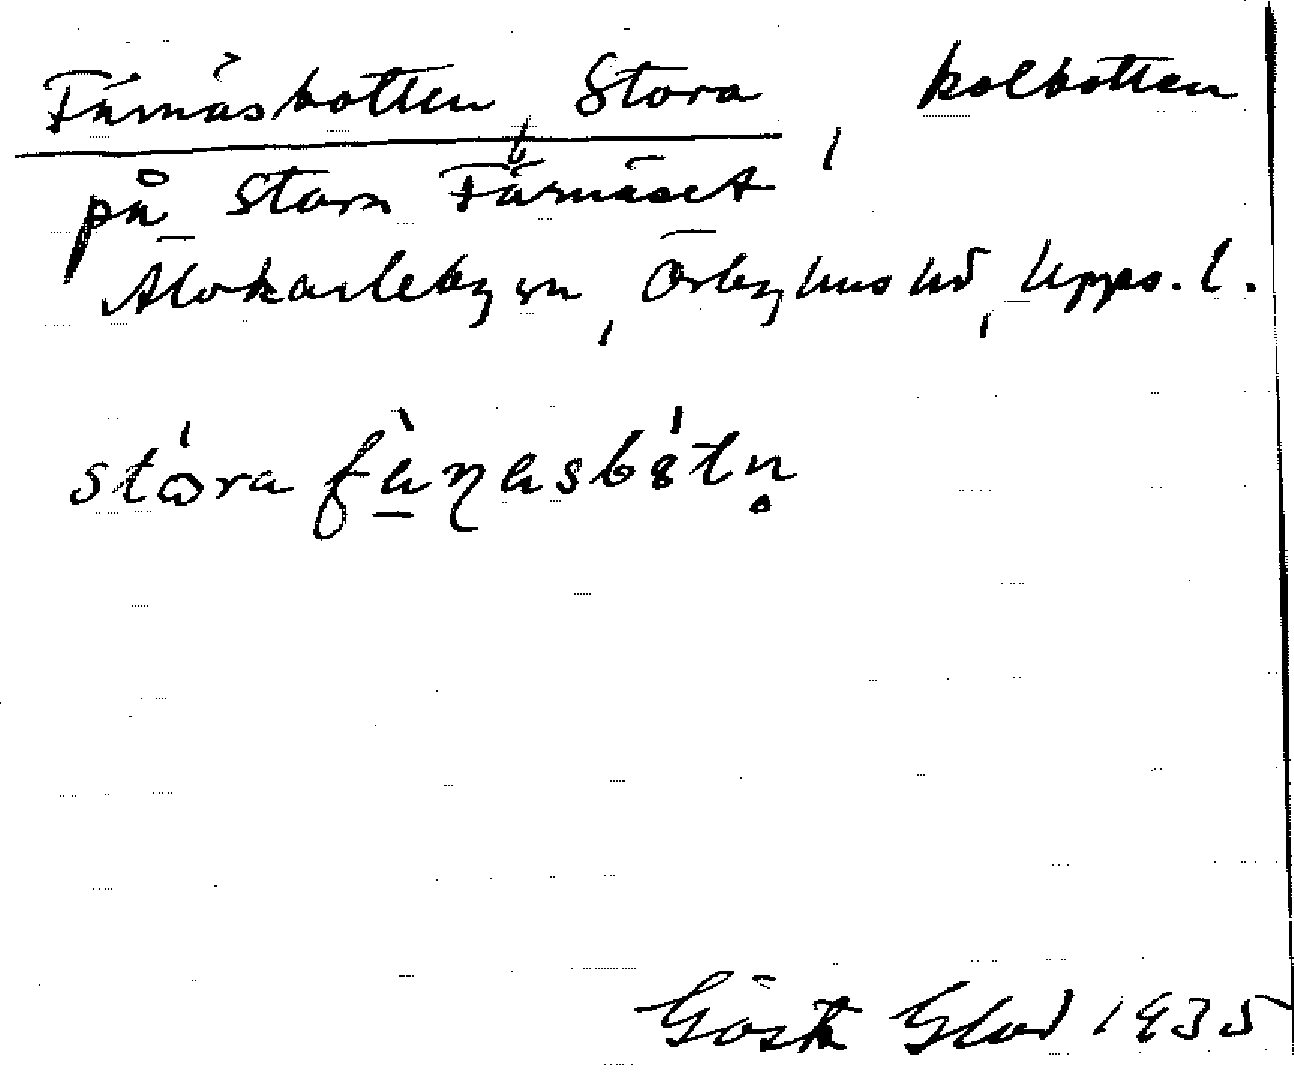 Färnäsbotten, Stora, kolbotten
på Stora Färnäset
Älvkarleby sn, Örbyhus hd, Upps. l.
stóra fàɳasbótn̥
Gösta Glad 1935